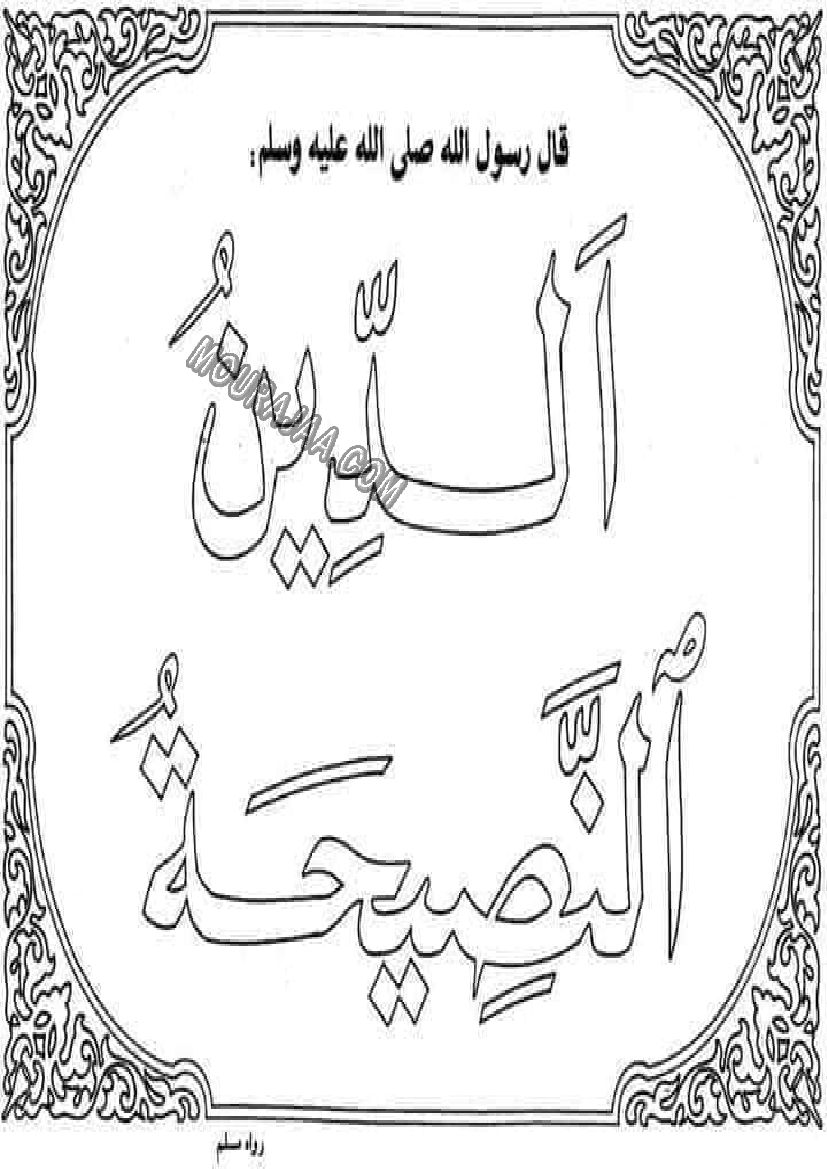 قال رسول الله صلى الله عليه وسلم:
اَلدِّينُ
MOURAJAA.COM
ٱلنَّصِيحَةُ
رواه مسلم